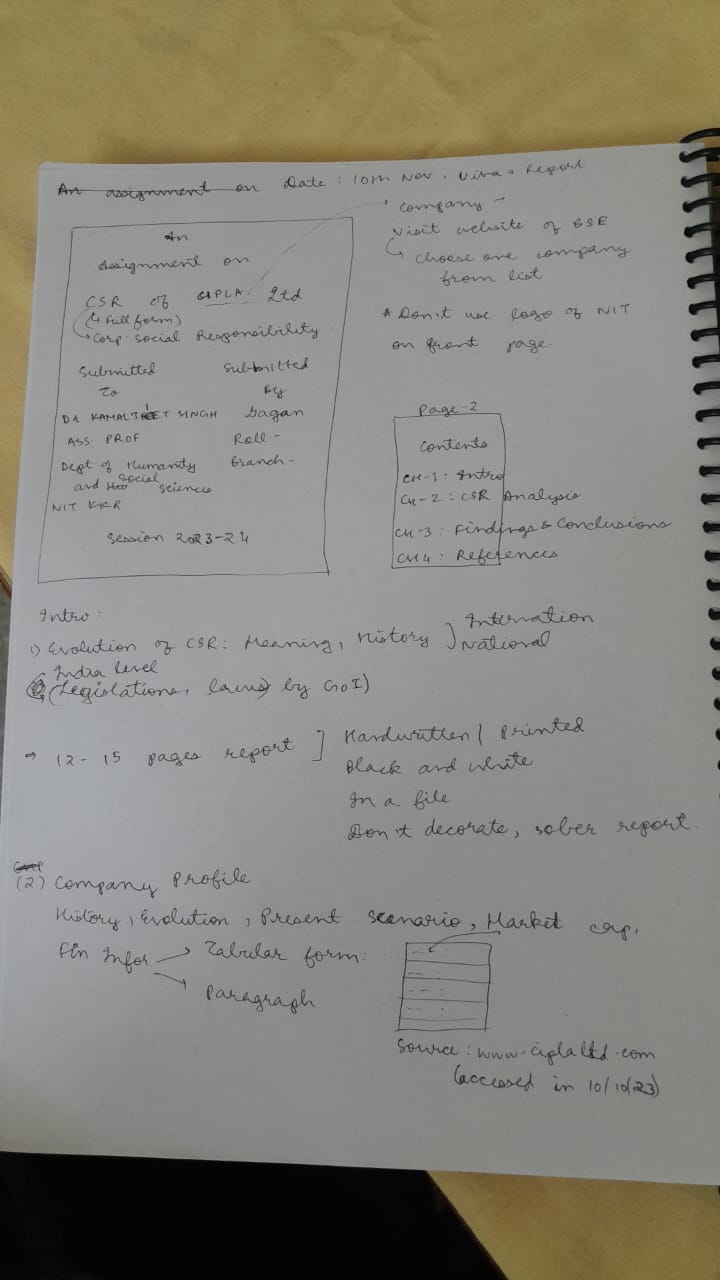 An assignment on Date: 10th Nov, Viva + Report
An
Assignment on
CSR of CIPLA Ltd
(↳ Full form)
→ Corp. Social Responsibility
Submitted Submitted
To By
DR KAMALJEET SINGH Gagan
ASS. PROF Roll -
Dept of Humanity Branch -
and Social Sciences
NIT KKR
Session 2023-24
→ Company -
Visit website of BSE
↳ choose one company
from list
* Don't use logo of NIT
on front page.
Page-2
Contents
CH-1: Intro
CH-2: CSR Analysis
CH-3: Findings & Conclusions
CH4: References
Intro:
1) Evolution of CSR: Meaning, History ] Internation
National
India level
(Legislations, laws) by GoI)
→ 12-15 pages report ] Handwritten / Printed
Black and white
In a file
Don't decorate, sober report.
(2) Company Profile
History, Evolution, Present scenario, Market cap.
Fin Infor → Tabular form:
→ Paragraph
Source: www.ciplaltd.com
(accessed in 10/10/23)